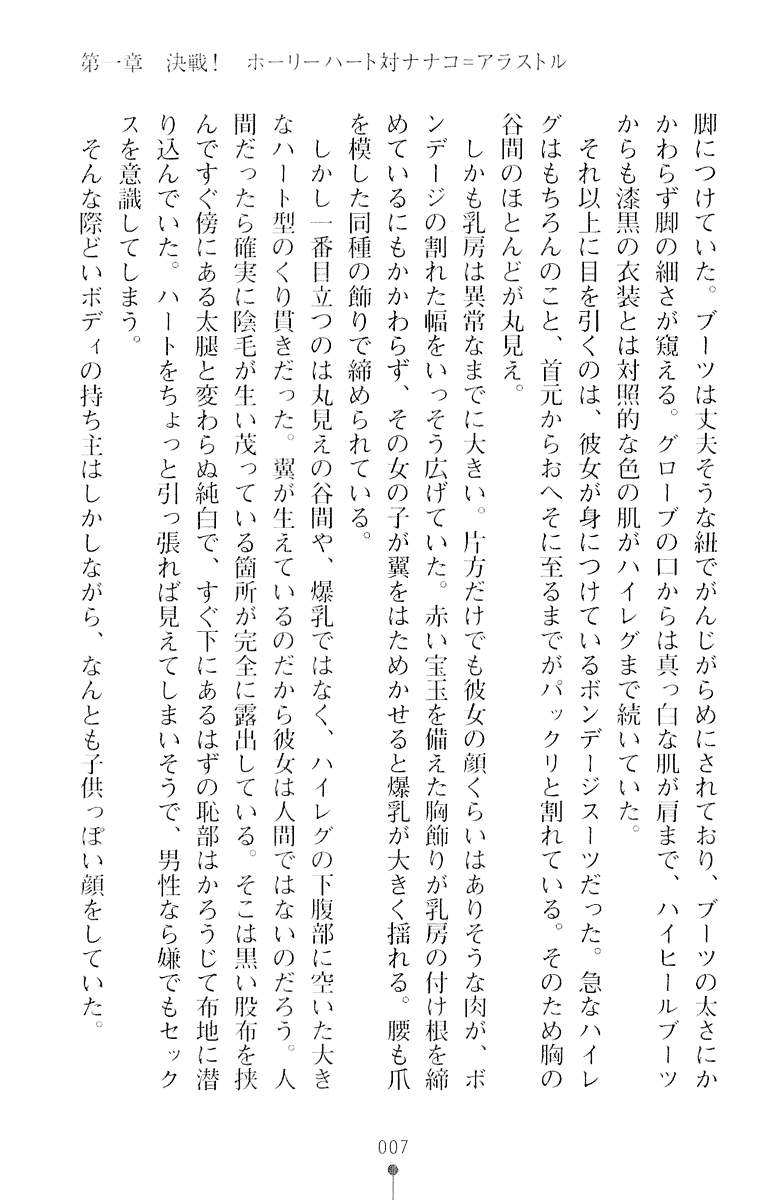 第一章　決戦！　ホーリーハート対ナナコ＝アラストル
脚につけていた。ブーツは丈夫そうな紐でがんじがらめにされており、ブーツの太さにか
かわらず脚の細さが窺える。グローブの口からは真っ白な肌が肩まで、ハイヒールブーツ
からも漆黒の衣装とは対照的な色の肌がハイレグまで続いていた。
それ以上に目を引くのは、彼女が身につけているボンデージスーツだった。急なハイレ
グはもちろんのこと、首元からおへそに至るまでがパックリと割れている。そのため胸の
谷間のほとんどが丸見え。
しかも乳房は異常なまでに大きい。片方だけでも彼女の顔くらいはありそうな肉が、ボ
ンデージの割れた幅をいっそう広げていた。赤い宝玉を備えた胸飾りが乳房の付け根を締
めているにもかかわらず、その女の子が翼をはためかせると爆乳が大きく揺れる。腰も爪
を模した同種の飾りで締められている。
しかし一番目立つのは丸見えの谷間や、爆乳ではなく、ハイレグの下腹部に空いた大き
なハート型のくり貫きだった。翼が生えているのだから彼女は人間ではないのだろう。人
間だったら確実に陰毛が生い茂っている箇所が完全に露出している。そこは黒い股布を挟
んですぐ傍にある太腿と変わらぬ純白で、すぐ下にあるはずの恥部はかろうじて布地に潜
り込んでいた。ハートをちょっと引っ張れば見えてしまいそうで、男性なら嫌でもセック
スを意識してしまう。
そんな際どいボディの持ち主はしかしながら、なんとも子供っぽい顔をしていた。
007